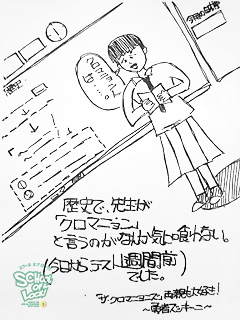 今日の日程
歴史
クロマニョン人は…。
歴史で、先生が
「クロマニョン」
と言うのがなんか気に喰わない。
(今日からテスト1週間前)
でした。
ザ・クロマニヨンズ、両親も大好き！
〜勇者ズッキーニ〜
SCHOOL OF LOCK!